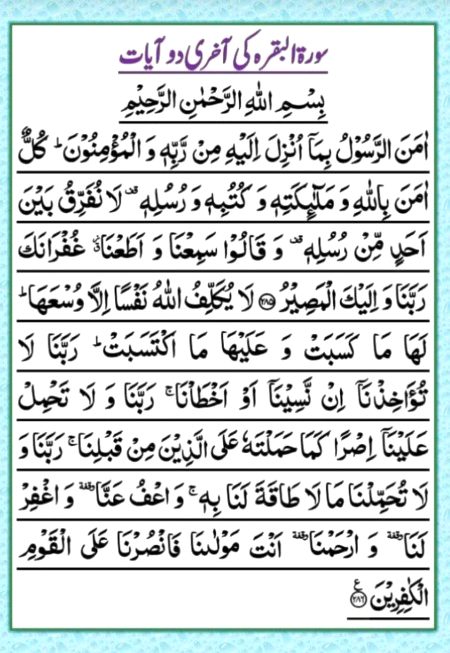 سورۃ البقرہ کی آخری دو آیات
بِسْمِ اللهِ الرَّحْمٰنِ الرَّحِيْمِ
اٰمَنَ الرَّسُوْلُ بِمَاۤ اُنْزِلَ اِلَيْهِ مِنْ رَّبِّهٖ وَ الْمُؤْمِنُوْنَ ؕ كُلٌّ
اٰمَنَ بِاللهِ وَ مَلٰٓئِكَتِهٖ وَ كُتُبِهٖ وَ رُسُلِهٖ ۫ لَا نُفَرِّقُ بَيْنَ
اَحَدٍ مِّنْ رُّسُلِهٖ ۫ وَ قَالُوْا سَمِعْنَا وَ اَطَعْنَا ۫ غُفْرَانَكَ
رَبَّنَا وَ اِلَيْكَ الْمَصِيْرُ ﴿۲۸۵﴾ لَا يُكَلِّفُ اللهُ نَفْسًا اِلَّا وُسْعَهَا ؕ
لَهَا مَا كَسَبَتْ وَ عَلَيْهَا مَا اكْتَسَبَتْ ؕ رَبَّنَا لَا
تُؤَاخِذْنَاۤ اِنْ نَّسِيْنَاۤ اَوْ اَخْطَاْنَا ۚ رَبَّنَا وَ لَا تَحْمِلْ
عَلَيْنَاۤ اِصْرًا كَمَا حَمَلْتَهٗ عَلَى الَّذِيْنَ مِنْ قَبْلِنَا ۚ رَبَّنَا وَ
لَا تُحَمِّلْنَا مَا لَا طَاقَةَ لَنَا بِهٖ ۚ وَ اعْفُ عَنَّا ۥ وَ اغْفِرْ
لَنَا ۥ وَ ارْحَمْنَا ۥ اَنْتَ مَوْلٰىنَا فَانْصُرْنَا عَلَى الْقَوْمِ
الْكٰفِرِيْنَ ﴿۲۸۶﴾ ع